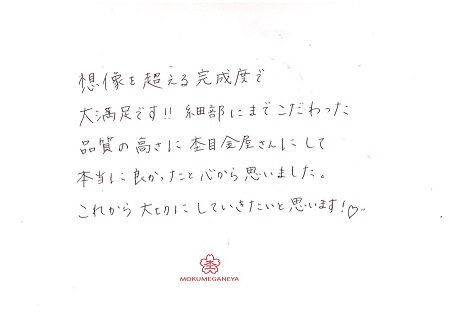 想像を超える完成度で
大満足です!! 細部にまでこだわった
品質の高さに杢目金屋さんにして
本当に良かったと心から思いました。
これから大切にしていきたいと思います!♡
MOKUMEGANEYA